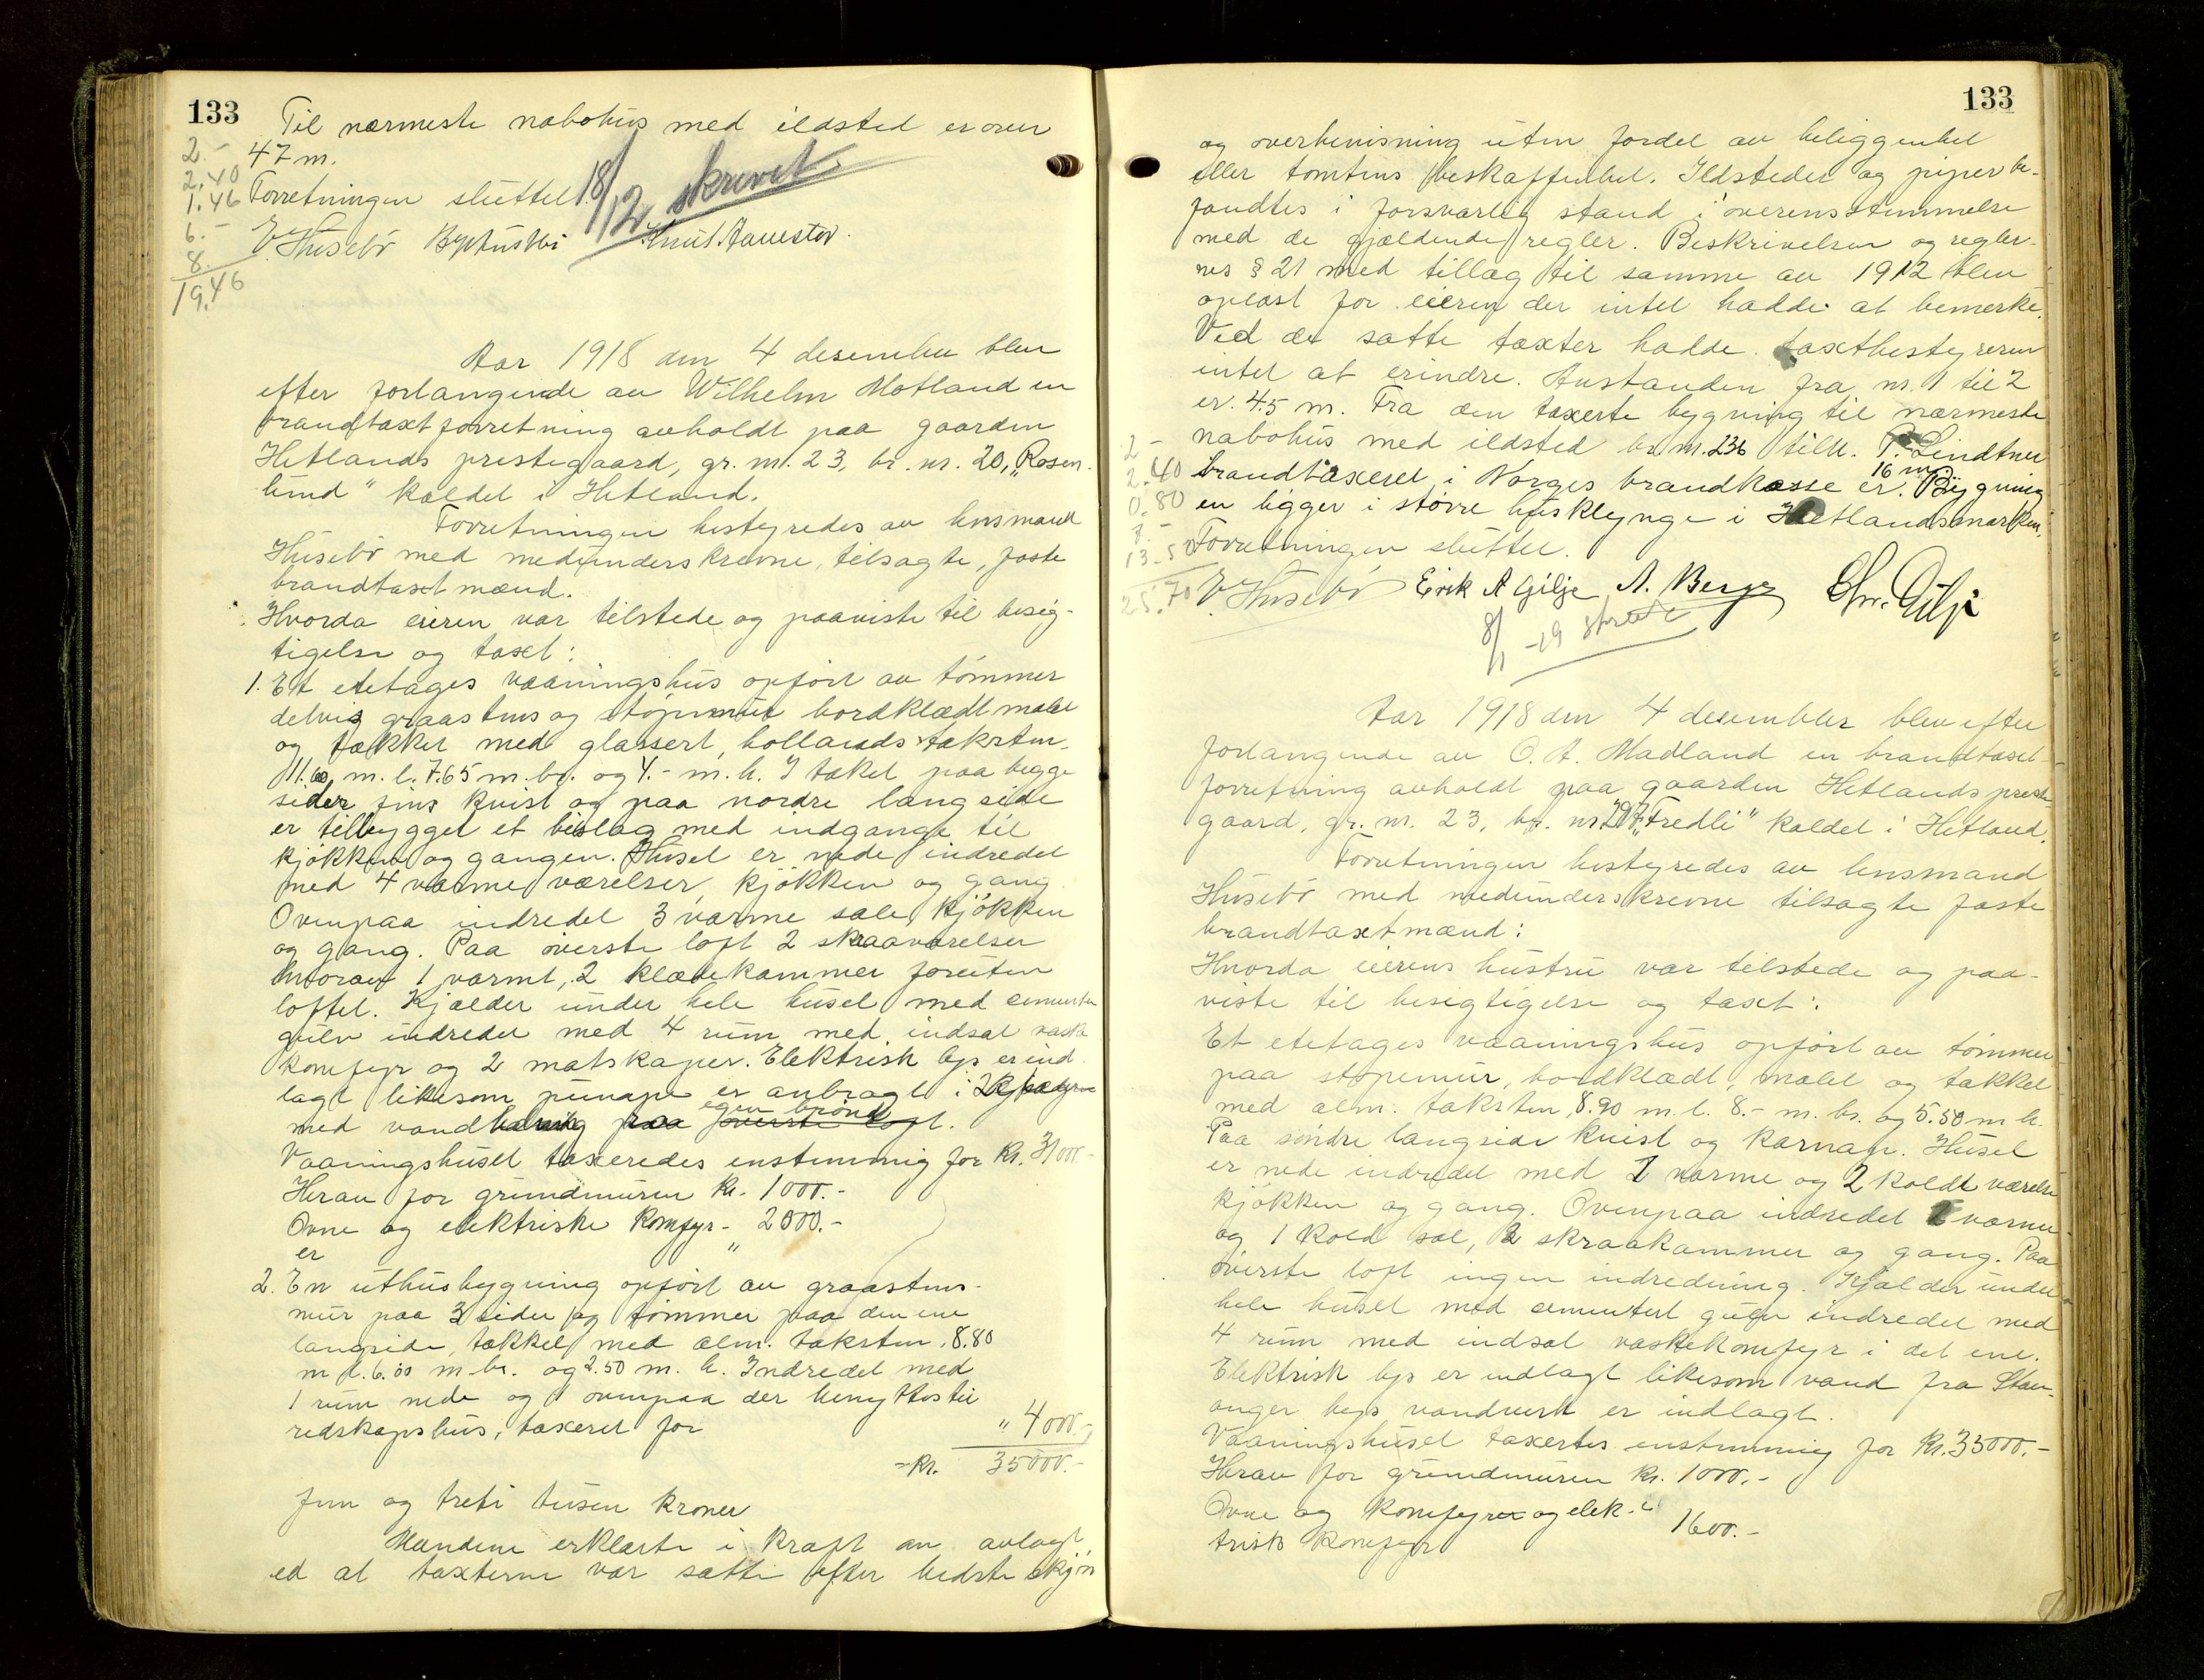 133
Til nærmeste nabohus med ildsted er over
47 m.
Forretningen sluttet.
18/12 skrevet.
E. Husebö
2.-
2.40
1.46
6.-
8.
19.46
Aar 1918 den 4 desember blev
efter forlangende av Wilhelm Motland en
brandtaxtforretning avholdt paa gaarden
Hetlands prestegaard, gr. nr. 23, br. nr. 20, "Rosen-
lund" kaldet i Hetland.
Forretningen bestyredes av lensmand
Husebö med medunderskrevne, tilsagte, faste
brandtaxtmænd.
Hvorda eieren var tilstede og paaviste til besig-
tigelse og taxt:
1. Et etetages vaaningshus opfört av tömmer
delvis graastens og stöpemur bordklædt malet
og tækket med glassert, hollandsk taksten.
11.60 m. l. 7.65 m. br. og 4.- m. h. I taket paa begge
sider fins kvist og paa nordre langside
er tilbygget et bislag med indgange til
kjökken og gangen. Huset er nede indredet
med 4 varme værelser, kjökken og gang
Ovenpaa indredet 3 varme sale, kjökken
og gang. Paa överste loft 2 skraaværelser
hvorav 1 varmt, 2 klædekammer foruten
loftet. Kjælder under hele huset med cementen
gulv indredet med 4 rum med indsat vaske
komfyr og 2 matskaper. Elektrisk lys er ind-
lagt likesom pumper er anbragt i
med vand egen brönd
Vaaningshuset taxeredes enstemmig for Kr. 31000.-
Herav for grundmuren Kr. 1000.-
Ovne og elektriske komfyr - 2000.-
er "
2. En uthusbygning opfört av graastens-
mur paa 3 sider og tömmer paa den ene
langside, tækket med alm. taksten, 8.80
m l. 6.00 m. br. og 2.50 m. h. Indredet med
1 rum nede og 1 ovenpaa der benyttes til
redskapshus, taxeret for " 4000.-
= Kr. 35000.-
Fem og treti tusen kroner
Mændene erklærte i kraft av avlagt
ed at taxterne var satte efter bedste skjön
133
og overbevisning uten fordel av beliggenhet
eller tomtens beskaffenhet. Ildsteder og piper be-
fandtes i forsvarlig stand i overensstemmelse
med de gjældende regler. Beskrivelsen og regler-
nes § 21 med tillæg til samme av 1912 blev
oplæst for eieren der intet hadde at bemerke.
Ved de satte taxter hadde taxtbestyreren
intet at erindre. Avstanden fra nr. 1 til 2
er 4.5 m. Fra den taxerte bygning til nærmeste
nabohus med ildsted br. nr. 236 tilh. P. Lindtner
brandtaxeret i Norges brandkasse er 16 m. Bygning
en ligger i större husklynge i Hetlandsmarken.
Forretningen sluttet.
2-
2.40
0.80
7.-
13.50
25.70
E. Husebö Eirik A Gilje A. Berge Chr. Gilje
8/1 -19
Aar 1918 den 4 desember blev efter
forlangende av O. A. Madland en brandtaxt-
forretning avholdt paa gaarden Hetlands preste-
gaard, gr. nr. 23, br. nr. 207, "Fredli" kaldet i Hetland.
Forretningen bestyredes av lensmand
Husebö med medunderskrevne tilsagte faste
brandtaxtmænd:
Hvorda eierens hustru var tilstede og paa-
viste til besigtigelse og taxt:
Et etetages vaaningshus opfört av tömmer
paa stöpemur, bordklædt, malet og tækket
med alm. taksten, 8.90 m. l. 8.- m. br. og 5.50 m h.
Paa söndre langside kvist og karnap. Huset
er nede indredet med 1 varme og 2 kolde værelse
kjökken og gang. Ovenpaa indredet 2 varme
og 1 kold sal, 2 skraakammer og gang. Paa
överste loft ingen indredning. Kjælder under
hele huset med cementert gulv indredet med
4 rum med indsat vaskekomfyr i det ene.
Elektrisk lys er indlagt likesom vand fra Stav-
anger bys vandverk er indlagt.
Vaaningshuset taxertes enstemmig for Kr. 33000.-
Herav for grundmuren Kr. 1000.-
Ovne og komfyrer og elek-
trisk komfyr 1600.-